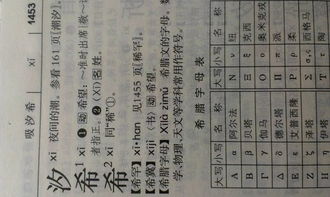 1453
吸汐希 xī
汐 xī 夜间的潮。参看161页[潮汐]。
希¹ xī ❶ 希望:~准时出席|敬~
者指正。❷(Xī)名姓。
希² xī 同“稀”①。
【希罕】xī·han 见1455页[稀罕]。
【希冀】xījì〈书〉动 希望。
【希腊字母】Xīlà zìmǔ 希腊文的字母。数
学、物理、天文等学科常用作符号。
希腊字母表
大写 小写 名称 大写 小写 名称
Α α 阿尔法 Ν ν 纽
Β β 贝塔 Ξ ξ 克西
Γ γ 伽马 Ο ο 奥米克戎
Δ δ 德尔塔 Π π 派
Ε ε 艾普西隆 Ρ ρ 柔
Ζ ζ 泽塔 Σ 西格马
Η η 伊塔 Τ τ 陶